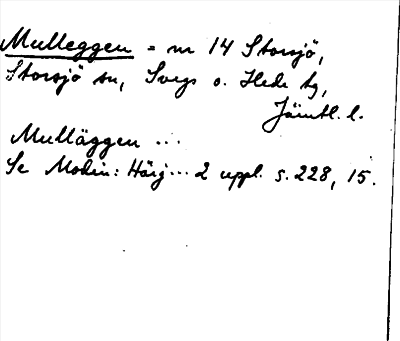 Mulleggen = nr 14 Storsjö,
Storsjö sn, Svegs o. Hede tg,
Jämtl. l.
Mulläggen ...
Se Modin: Härj... 2 uppl. s. 228, 15.